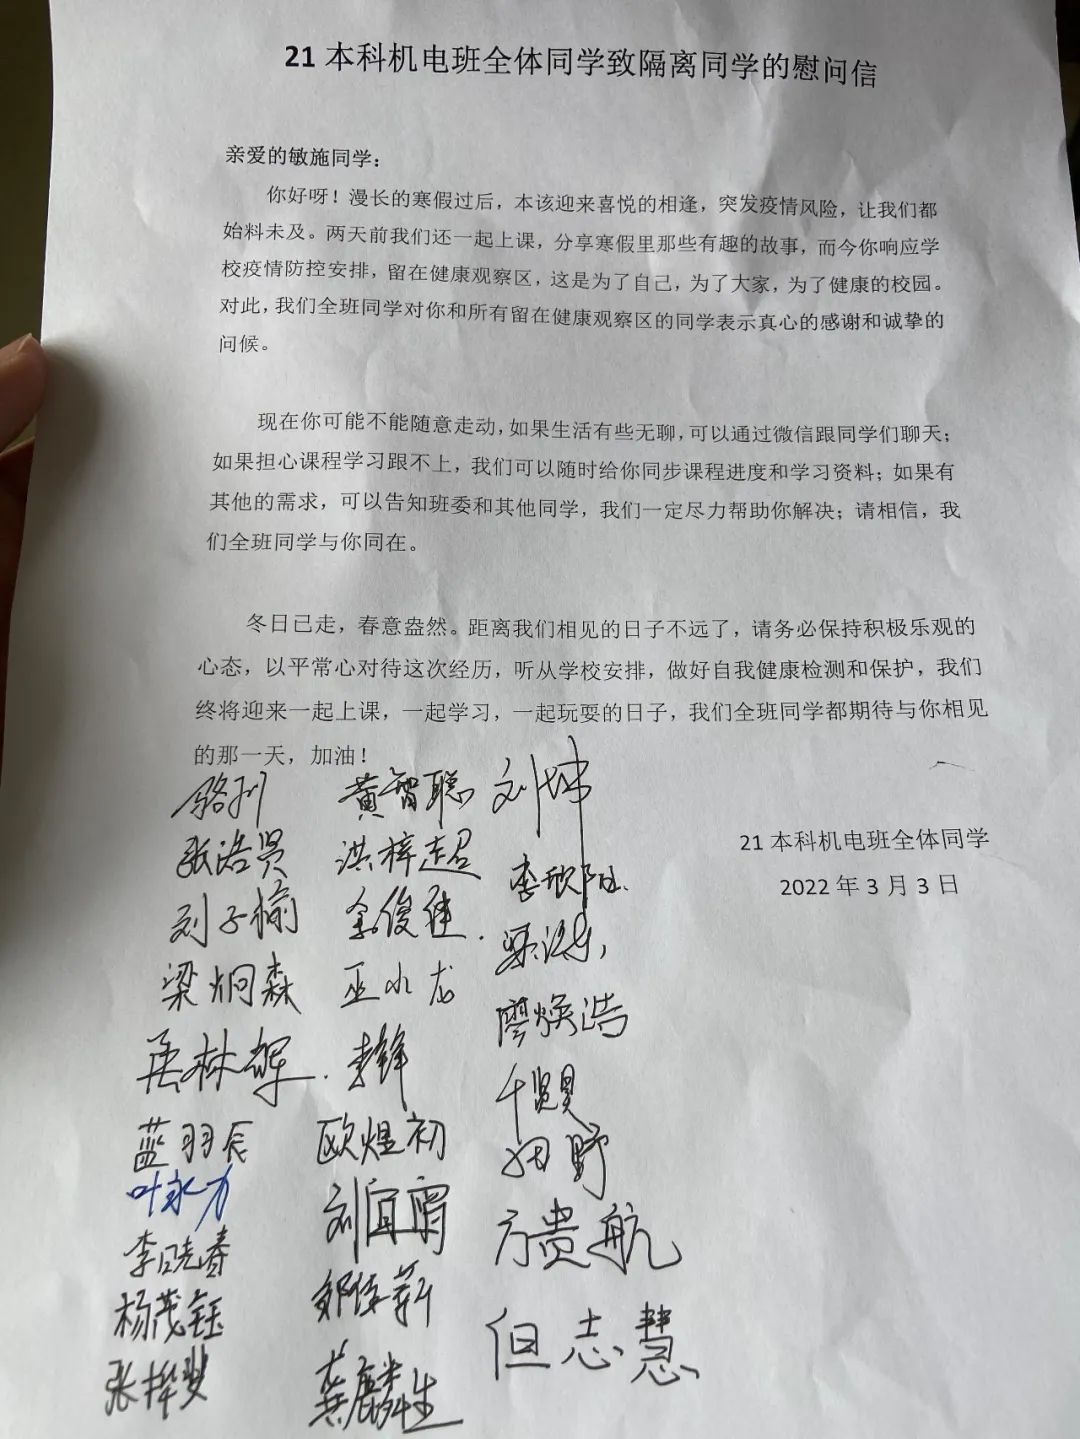 21本科机电班全体同学致隔离同学的慰问信
亲爱的敏施同学：
你好呀！漫长的寒假过后，本该迎来喜悦的相逢，突发疫情风险，让我们都
始料未及。两天前我们还一起上课，分享寒假里那些有趣的故事，而今你响应学
校疫情防控安排，留在健康观察区，这是为了自己，为了大家，为了健康的校园。
对此，我们全班同学对你和所有留在健康观察区的同学表示真心的感谢和诚挚的
问候。
现在你可能不能随意走动，如果生活有些无聊，可以通过微信跟同学们聊天；
如果担心课程学习跟不上，我们可以随时给你同步课程进度和学习资料；如果有
其他的需求，可以告知班委和其他同学，我们一定尽力帮助你解决；请相信，我
们全班同学与你同在。
冬日已走，春意盎然。距离我们相见的日子不远了，请务必保持积极乐观的
心态，以平常心对待这次经历，听从学校安排，做好自我健康检测和保护，我们
终将迎来一起上课，一起学习，一起玩耍的日子，我们全班同学都期待与你相见
的那一天，加油！
21本科机电班全体同学
2022年3月3日
张浩贤
刘子榆
梁炯森
蓝羽辰
叶永力
李晓春
杨茂钰
黄智聪
洪梓超
巫水龙
李锋
欧煜初
龚麟生
刘坤
李欣阳
廖焕浩
田野
方贵航
但志慧